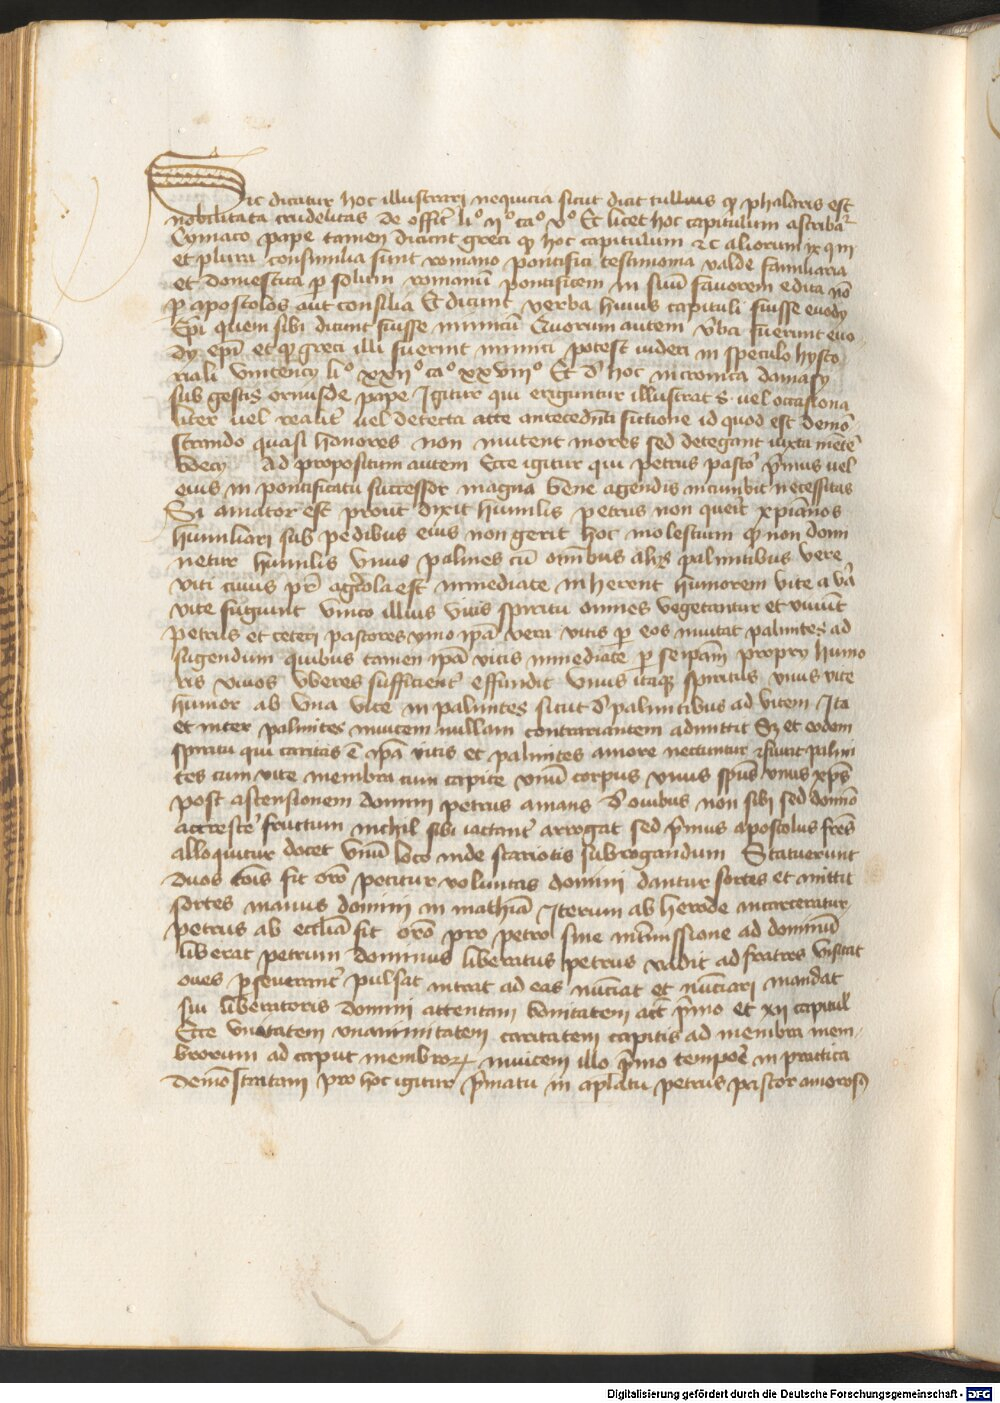 Sic dicitur hoc illustrari nequicia sicut dicit tullius qͥ phalaris est
nobilitata crudelitas de offic̄ liͦ ijͦ caͦ vͦ Et licet hoc capitulum ascribat᷑
Cymaco pape tamen dicunt greci qͥ hoc capitulum et c aliorum ix q iij
et plura consimilia sunt romano pontifici testimonia valde familiaria
et domestica ꝑ solum romanū pontificem in suū fauorem edita nō
ꝑ apostolos aut consilia Et dicunt verba huius capituli fuisse euody
Ep̄i quem sibi dicunt fuisse inimicū Quorum autem v̓ba fuerunt euo
dy ep̄i et qͥ greci illi fuerint inimici potest videri in speculo hysto
riali Vincency liͦ xxiiͦ caͦ xxviiiͦ Et d̓ hoc in cronica damasy
sub gestis ormisde pape Igitur qui eriguntur illustrat s. vel occasiona
liter vel realit̓ vel detecta arte antecedn̄ti fictione id quod est demō
strando quasi honores non mutent mores sed detegant iuxta mētē
boecy Ad propositum autem Ecce igitur qui petrus pastor p̓mus vel
eius in pontificatu successor magna bene agendis incumbit necessitas
Si amator est prout dixit humilis petrus non querit xp̄ianos
humiliari sub pedibus eius non gerit hoc molestum qͥ non domi
netur humilis Vnus palmes cū omībus alijs palmitibus vere
viti cuius pr̄ agricola est inmediate inherent humorem vite a v̓a
vite sugunt vnico illius viuis spiritu omnes vegetantur et viuūt
petrus et ceteri pastores vino ip̄a vera vitis ꝑ eos inuitat palmites ad
sugendum quibus tamen ip̄a vitis inmediate ꝑ seip̄am propry humo
ris viuos vberes sufficient̓ effundit Vnus itaqꝫ spiritus vnus vite
humor ab vna vite in palmites sicut d̓ palmitibus ad vitem Ita
et inter palmites inuicem nullam contrarietatem admittit Sꝫ et eodem
spiritu qui caritas ē ip̄a vitis et palmites amore nectuntur palmi
tes cum vite membra cum capite vnū corpus vnus sp̄us vnus xp̄s
post ascensionem domini petrus amans d̓ ouibus non sibi sed domīo
accrescē fructum nichil sibi iactant̓ arrogat sed p̓mus apostolus fr̄es
alloquitur docet vnū loco inde scariotis subrogandum Statuerunt
duos fit orō petitur voluntas domini dantur sortes et mittit
sortes manus domini in mathiā Iterum ab herode incarceratur
petrus ab eccl̄ia fit orō pro petro sine int̓missione ad dominū
liberat petrum dominus liberatus petrus vadit ad fratres visitat
oues ꝑseuerant̓ pulsat intrat ad eas nūciat et nūciari mandat
sui liberatoris domini attentam bōnitatem act̄ p̓mo et xij capitul̄
Ecce vnitatem vnanimitatem caritatem capitis ad membra mem
brorum ad caput membroꝝ inuicem illo p̓mo tempore in practica
demōstratam pro hoc igitur p̓matu in ap̄latu petrus pastor amorosꝰ
Digitalisierung gefördert durch die Deutsche Forschungsgemeinschaft - DFG